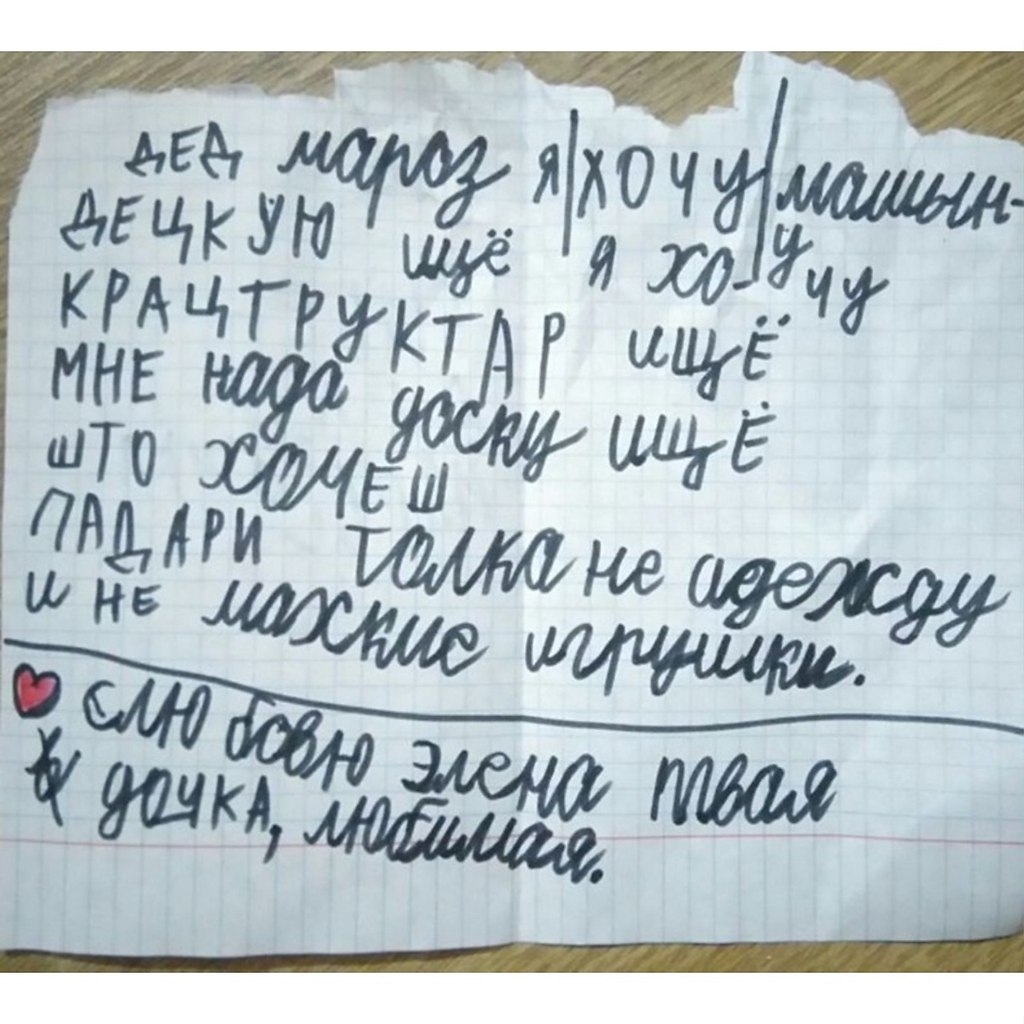 ДЕД мароз я|ХОЧУ|машын-
ДЕЦКУЮ ищё я хо-чу у
КРАЦТРУКТАР ИЩЁ
МНЕ нада доску ИЩЁ
ШТО ХОЧЕШ
ПАДАРИ толка не адежду
и НЕ махкие игрушки.
слюбовю элена твая
дочка, любимая.